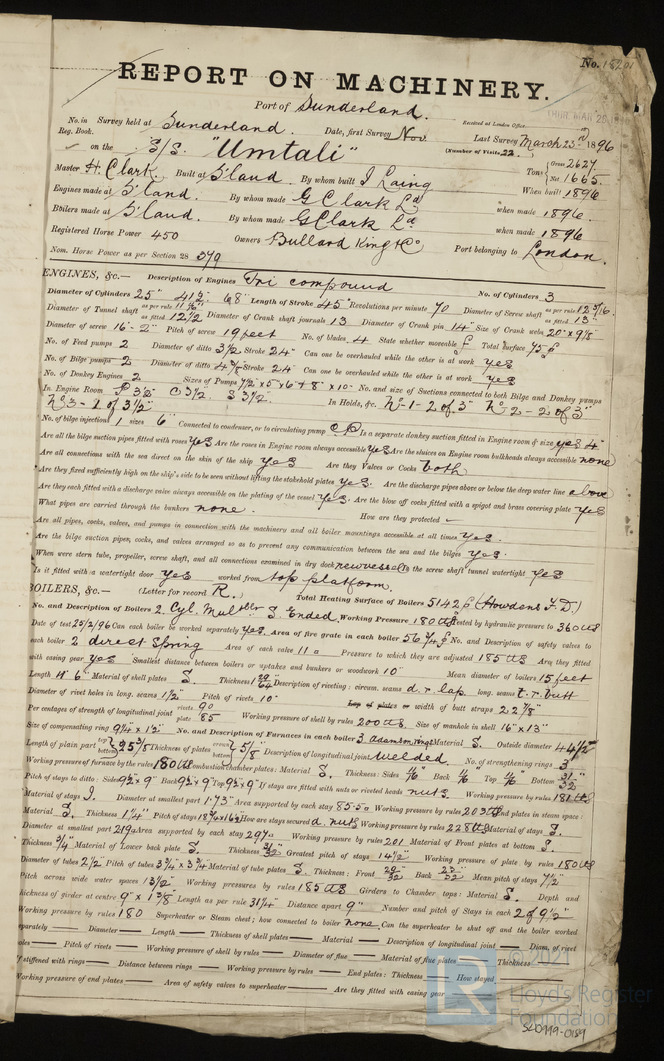 No. 15201
REPORT ON MACHINERY.
Port of Sunderland.
Received at London Office
No. in Survey held at Sunderland. Date, first Survey Nov. Last Survey March 23rd 1896
Reg. Book. (Number of Visits 22.)
on the S/S. "Umtali" Tons Gross 2627 Net 1665.
Master H. Clark. Built at S'land. By whom built J Laing When built 1896
Engines made at S'land. By whom made G Clark Ld when made 1896.
Boilers made at S'land. By whom made G Clark Ld when made 1896
Registered Horse Power 450 Owners Bullard King & Co Port belonging to London.
Nom. Horse Power as per Section 28 379
ENGINES, &c.— Description of Engines Tri compound No. of Cylinders 3
Diameter of Cylinders 25" 41½" 68" Length of Stroke 45" Revolutions per minute 70 Diameter of Screw shaft as per rule 12 5/16 as fitted 13"
Diameter of Tunnel shaft as per rule as fitted 12½ Diameter of Crank shaft journals 13 Diameter of Crank pin 14" Size of Crank webs 20" x 9⅛"
Diameter of screw 16'-2" Pitch of screw 19 feet No. of blades 4 State whether moveable Total surface 75
No. of Feed pumps 2 Diameter of ditto 3½ Stroke 24" Can one be overhauled while the other is at work yes
No. of Bilge pumps 2 Diameter of ditto 4⅛ Stroke 24" Can one be overhauled while the other is at work yes
No. of Donkey Engines 2 Sizes of Pumps 7½" x 5" x 6" + 8" x 10" No. and size of Suctions connected to both Bilge and Donkey pumps
In Engine Room P 3½" C 3½. S 3½". In Holds, &c. No-1-2 of 3" No 2-2 of 3"
No 3-1 of 3½"
No. of bilge injections 1 sizes 6" Connected to condenser, or to circulating pump C.P. Is a separate donkey suction fitted in Engine room & size yes 4"
Are all the bilge suction pipes fitted with roses yes Are the roses in Engine room always accessible yes Are the sluices on Engine room bulkheads always accessible none
Are all connections with the sea direct on the skin of the ship yes Are they Valves or Cocks both
Are they fixed sufficiently high on the ship's side to be seen without lifting the stokehold plates yes. Are the discharge pipes above or below the deep water line above
Are they each fitted with a discharge valve always accessible on the plating of the vessel yes. Are the blow off cocks fitted with a spigot and brass covering plate yes
What pipes are carried through the bunkers none. How are they protected —
Are all pipes, cocks, valves, and pumps in connection with the machinery and all boiler mountings accessible at all times yes.
Are the bilge suction pipes, cocks, and valves arranged so as to prevent any communication between the sea and the bilges yes.
When were stern tube, propeller, screw shaft, and all connections examined in dry dock new vessel Is the screw shaft tunnel watertight yes
Is it fitted with a watertight door yes worked from top platform.
BOILERS, &c.— (Letter for record R.) Total Heating Surface of Boilers 5142 (Howdens F.D.)
No. and Description of Boilers 2 Cyl. Mulblr S. Ended. Working Pressure 180 lbs Tested by hydraulic pressure to 360 lbs
Date of test 25/2/96 Can each boiler be worked separately yes. Area of fire grate in each boiler 56¼ No. and Description of safety valves to
each boiler 2 direct Spring Area of each valve 11" Pressure to which they are adjusted 185 lbs Are they fitted
with easing gear yes Smallest distance between boilers or uptakes and bunkers or woodwork 10" Mean diameter of boilers 15 feet
Length 11'6" Material of shell plates S. Thickness Description of riveting: circum. seams d.r lap. long. seams t.r. butt
Diameter of rivet holes in long. seams 1½" Pitch of rivets 10" Lap of plates or width of butt straps 22⅞"
Per centages of strength of longitudinal joint rivets 90 plate 85 Working pressure of shell by rules 200 lbs Size of manhole in shell 16" x 13"
Size of compensating ring 9¼" x 1½" No. and Description of Furnaces in each boiler 3 Adamson rings Material S. Outside diameter 44½"
Length of plain part top bottom 25⅜ Thickness of plates crown bottom 5/8" Description of longitudinal joint welded. No. of strengthening rings 3
Working pressure of furnace by the rules 180 lbs Combustion chamber plates: Material S. Thickness: Sides Back Top Bottom 31/32
Pitch of stays to ditto: Sides 9½" x 9" Back 9½" x 9" Top 9½" x 9" If stays are fitted with nuts or riveted heads nuts. Working pressure by rules 181 lbs
Material of stays I. Diameter at smallest part 1.73" Area supported by each stay 85.5" Working pressure by rules 203 lbs End plates in steam space:
Material S. Thickness 1¼" Pitch of stays How are stays secured d. nuts Working pressure by rules 228 lbs Material of stays S.
Diameter at smallest part Area supported by each stay 297" Working pressure by rules 201 Material of Front plates at bottom S.
Thickness ¾" Material of Lower back plate S. Thickness Greatest pitch of stays 14½" Working pressure of plate by rules 180 lbs
Diameter of tubes 2½" Pitch of tubes 3¾" x 3¾ Material of tube plates S. Thickness: Front Back Mean pitch of stays 7½"
Pitch across wide water spaces 13½" Working pressures by rules 185 lbs Girders to Chamber tops: Material S. Depth and
thickness of girder at centre 9" x 1⅜" Length as per rule 31¼" Distance apart 9" Number and pitch of Stays in each 2 of 9½"
Working pressure by rules 180 Superheater or Steam chest; how connected to boiler none. Can the superheater be shut off and the boiler worked
separately — Diameter — Length — Thickness of shell plates — Material — Description of longitudinal joint — Diam. of rivet
holes — Pitch of rivets — Working pressure of shell by rules — Diameter of flue — Material of flue plates — Thickness —
If stiffened with rings — Distance between rings — Working pressure by rules — End plates: Thickness — How stayed —
Working pressure of end plates — Area of safety valves to superheater — Are they fitted with easing gear —
© 2021
LR
Lloyd's Register
Foundation
SLD919-0159